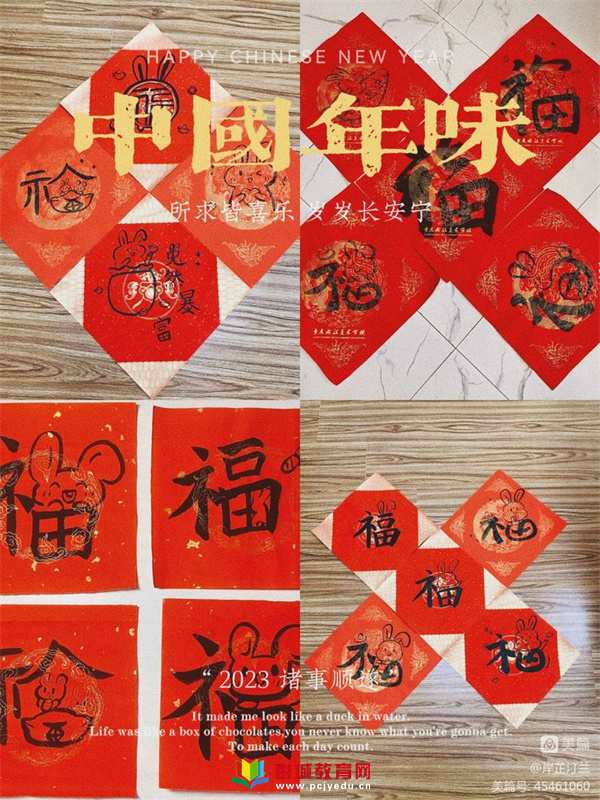 HAPPY CHINESE NEW YEAR
中國年味
所求皆喜乐 岁岁长安宁
福
福
暴富
福
福
福
福
福
福
福
福
福
福
“ 2023 诸事顺遂
It made me look like a duck in water.
Life was like a box of chocolates,you never know what you're gonna get.
To make each day count.
美篇
@岸芷汀兰
美篇号: 45461060
彭城教育网
www.pcjyedu.cn